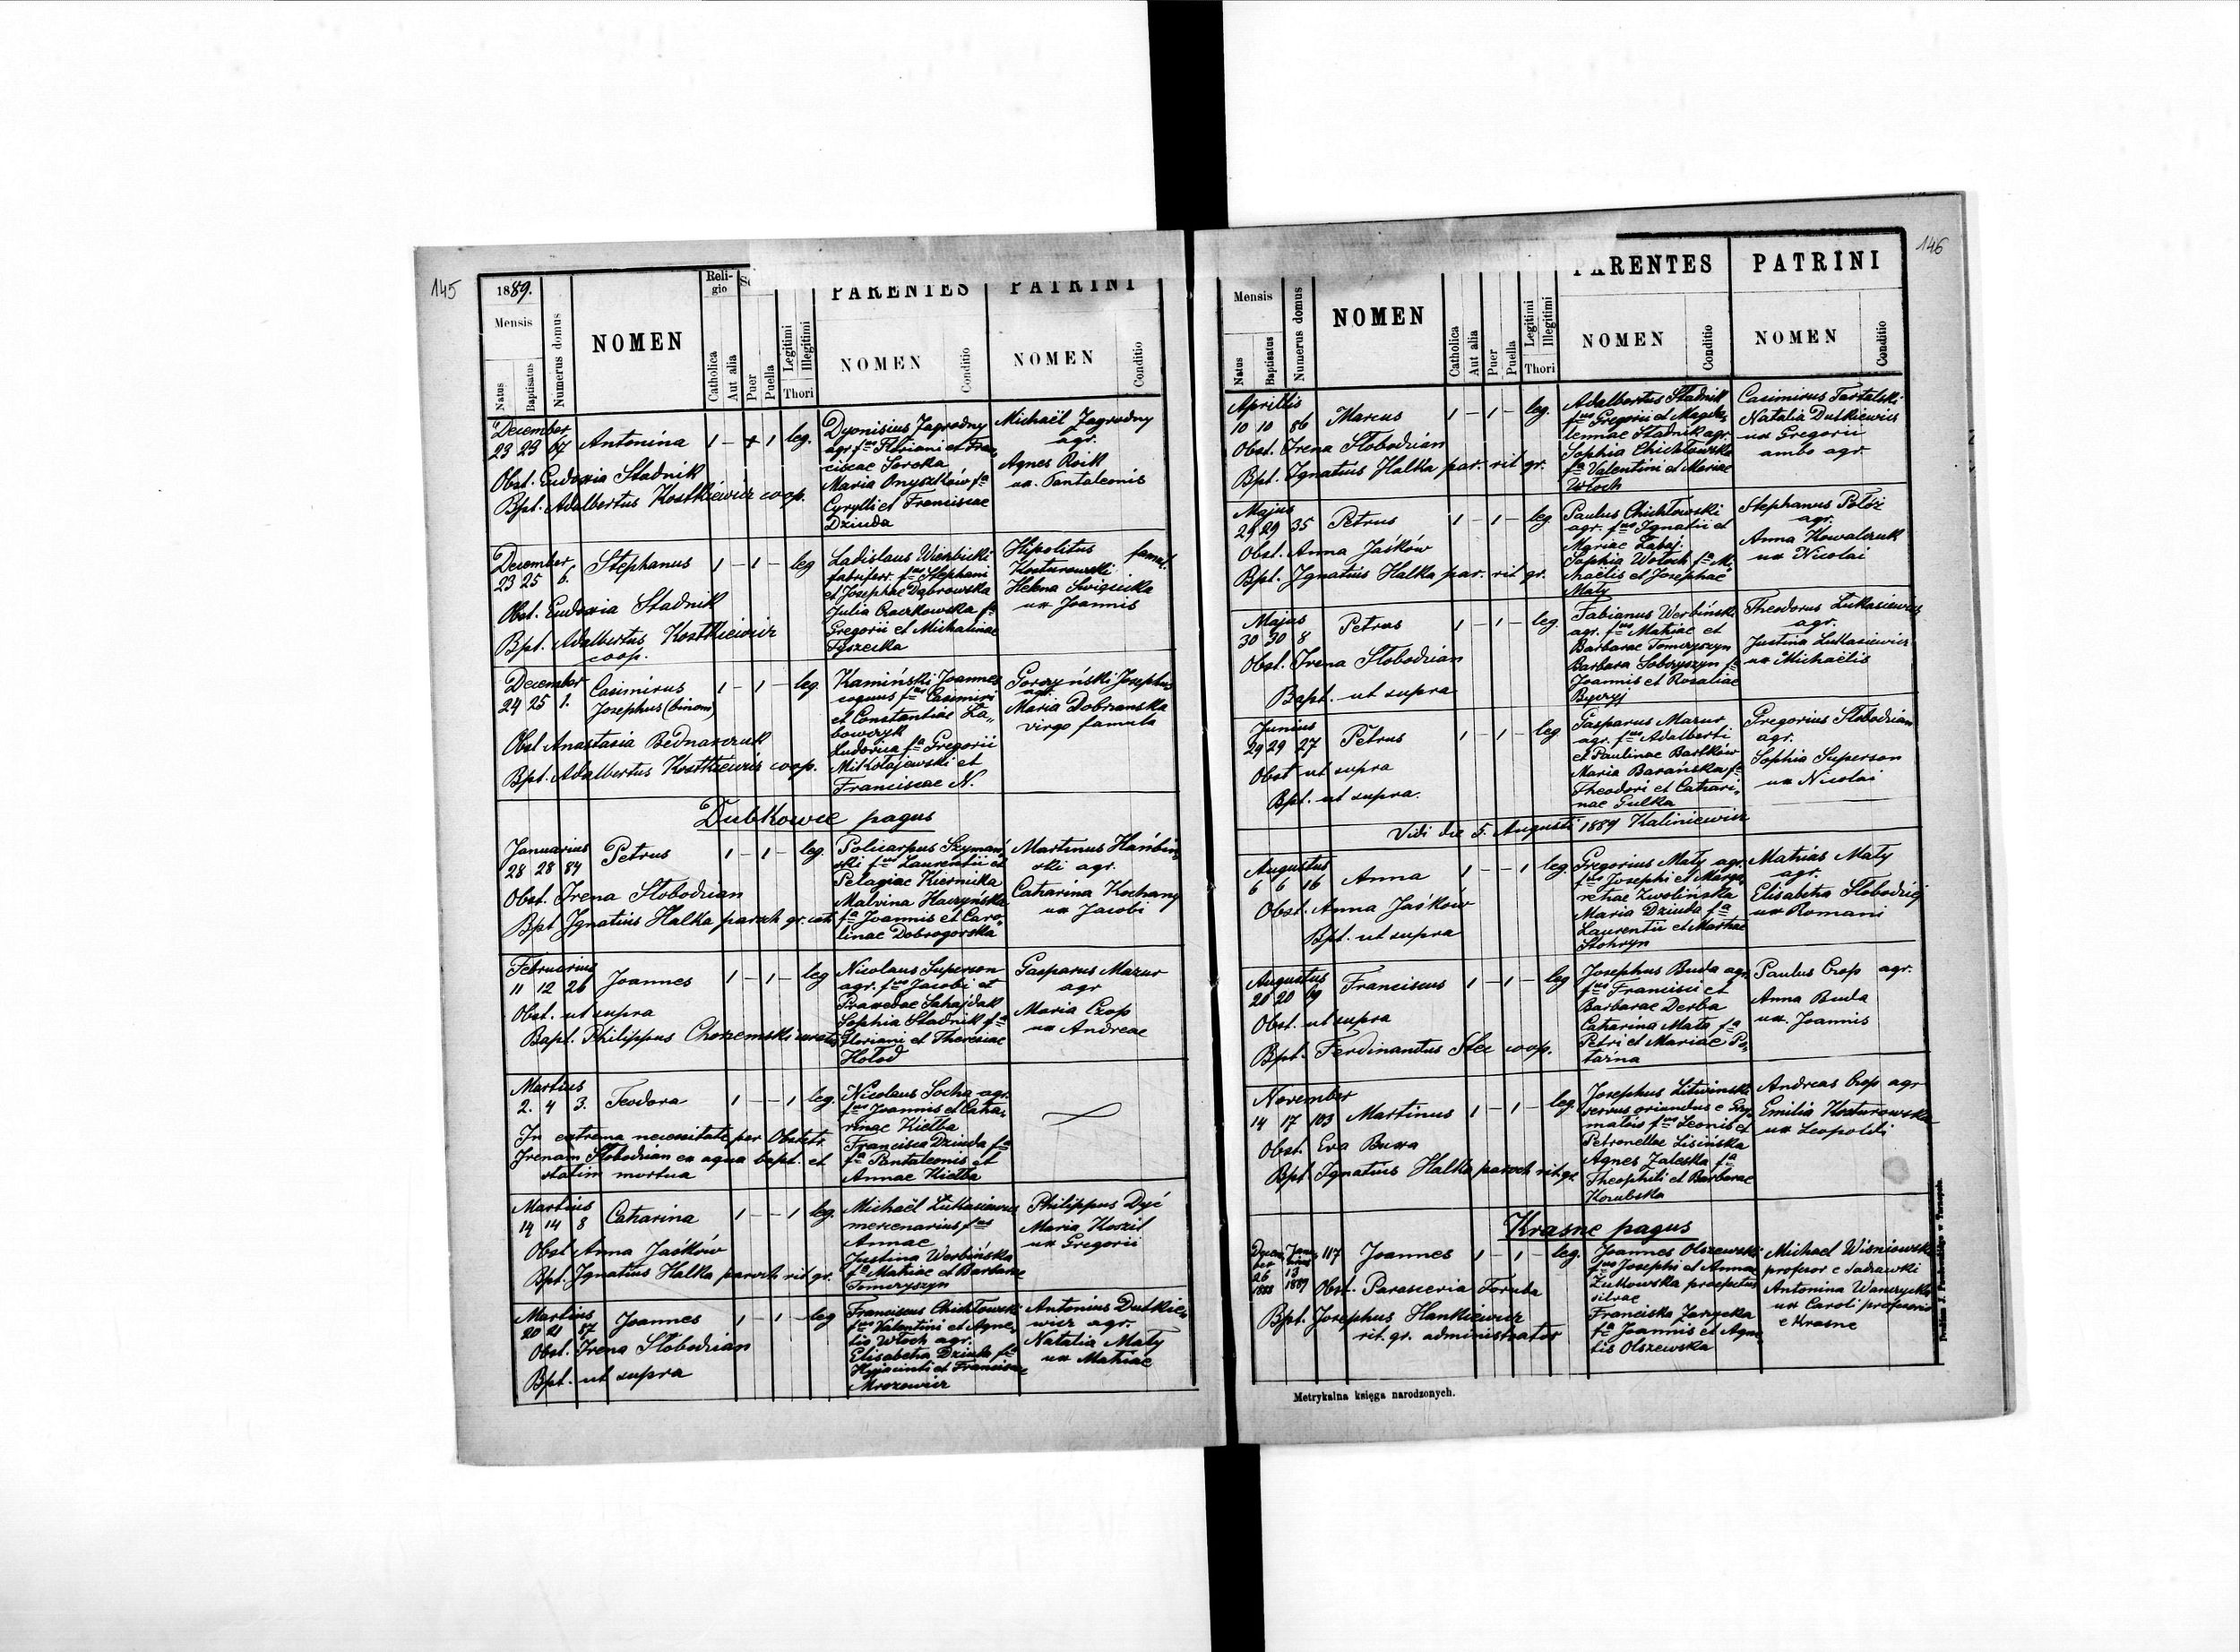 145
1889.
Mensis
Natus
Baptisatus
Numerus domus
NOMEN
Reli-
gio
Catholica
Aut alia
Puer
Puella
Legitimi
Illegitimi
Thori
PARENTES
NOMEN
Conditio
PATRINI
NOMEN
Conditio
December
23 23 67 Antonina 1 – 1 leg.
Obst. Eudoxia Stadnik
Bpt. Adalbertus Kostkiewicz coop.
Dyonisius Jagrodny
agr. fus Floriani et Fran,,
ciscae Soroka
Maria Onyszków fa
Cyrylli et Franciscae
Dziuda
Michaël Zagrodny
agr.
Agnes Roik
ux. Pantaleonis
December
23 25 6. Stephanus 1 – 1 – leg
Obst. Eudoxia Stadnik
Bpt. Adalbertus Kostkiewicz
coop.
Ladislaus Wierzbicki
fabr. ferr. fus Stephani
et Josephae Dąbrowska
Julia Czaczkowska fa
Gregorii et Michalinae
Tyszecka
Hipolitus famul.
Kocturowski
Helena Swigicka
ux Joannis
December
24 25 1. Casimirus 1 – 1 – leg.
Josephus (binom)
Obst Anastasia Bednarczuk
Bpt. Adalbertus Kostkiewicz coop.
Kamiński Joannes
coquus fus Casimiri
et Constantiae La,,
bowczyk
Ludovica fa Gregorii
Mikołajewski et
Franciscae N.
Gorczyński Josephus
agr.
Maria Dobrzanska
virgo famula
Dubkowce pagus
Januarius
28 28 84 Petrus 1 – 1 – leg.
Obst. Irena Słobodzian
Bpt Ignatius Halka paroch gr. cath
Policarpus Szymań
ski fus Laurentii et
Pelagiae Kiernicka
Malvina Haczyńska
fa Joannis et Caro
linae Dobrogorska
Martinus Hanbin
ski agr.
Catharina Kochany
ux Jacobi
Februarius
11 12 26 Joannes 1 – 1 – leg
Obst. ut supra
Bapt. Philippus Chorzemski curatus
Nicolaus Superson
agr. fus Jacobi et
Praxedae Sahajdak
Sophia Stadnik fa
Floriani et Theresiae
Hołod
Gasparus Mazur
agr
Maria Czop
ux Andreae
Martius
2. 4 3. Teodora 1 – – 1 leg.
In extrema necessitate per Obstetr.
Irenam Słobodzian ex aqua bapt. et
statim mortua
Nicolaus Socha agr.
fus Joannis et Catha,
rinae Kiełba
Francisca Dziuda fa
fa Pantaleonis et
Annae Kiełba
Martius
14 14 8 Catharina 1 – – 1 leg.
Obst Anna Jaśków
Bpt. Ignatius Halka paroch rit gr.
Michaël Łukasiewicz
mercenarius fus
Annae
Justina Werbińska
fa Mathiae et Barbarae
Tomczyszyn
Philippus Dyć
Maria Koszil
ux Gregorii
Martius
20 21 87 Joannes 1 – 1 – leg
Obst. Irena Słobodzian
Bpt. ut supra
Franciscus Chichłowski
fus Valentini et Agne,
tis Włoch agr.
Elisabetha Dziuda fa
Hyacinti et Franciscae
Mrozowicz
Antonius Dutkie,,
wicz agr.
Natalia Mały
ux Mathiae
146
Mensis
Natus
Baptisatus
Numerus domus
NOMEN
Catholica
Aut alia
Puer
Puella
Legitimi
Illegitimi
Thori
PARENTES
NOMEN
Conditio
PATRINI
NOMEN
Conditio
Aprillis
10 10 86 Marcus 1 – 1 – leg.
Obst. Irena Słobodzian
Bpt. Ignatius Halka par. rit gr.
Adalbertus Stadnik
fus Gregorii et Magda,
lennae Stadnik agr.
Sophia Chichłowska
fa Valentini et Mariae
Włoch
Casimirus Tartalski
Natalia Dutkiewicz
ux Gregorii
ambo agr.
Majus
29 29 35 Petrus 1 – 1 – leg
Obst. Anna Jaśków
Bpt. Ignatius Halka par. rit gr.
Paulus Chichłowski
agr. fus Ignatii et
Mariae Łabaj.
Sophia Wołoch fa Mi,
haëlis et Josephae
Mały
Stephanus Połóz
agr.
Anna Kowalczuk
ux Nicolai
Majus
30 30 8 Petrus 1 – 1 – leg.
Obst. Irena Słobodzian
Bapt. ut supra
Fabianus Werbiński
agr. fus Mathiae et
Barbarae Tomczyszyn
Barbara Sobczyszyn fa
Joannis et Rosaliae
Byczyj
Theodorus Łukasiewicz
agr.
Justina Łukasiewicz
ux Michaëlis
Junius
29 29 27 Petrus 1 – 1 – leg
Obst ut supra
Bpt. ut supra.
Gasparus Mazur
agr. fus Adalberti
et Paulinae Bartków
Maria Barańska fa
Theodori et Cathari,
nae Gulka
Gregorius Słobodzian
agr.
Sophia Superson
ux Nicolai
Vidi die 5. Augusti 1889 Kaliniewicz
Augustus
6 6 16 Anna 1 – – 1 leg.
Obst. Anna Jaśków
Bpt. ut supra
Gregorius Mały agr.
fus Josephi et Marga,
rethae Zwolińska
Maria Dziuda fa
Laurentii et Marthae
Stohryn
Mathias Mały
agr.
Elisabetha Słobodzian
ux Romani
Augustus
20 20 19 Franciscus 1 – 1 – leg
Obst. ut supra
Bpt. Ferdinandus Stec coop.
Josephus Buda agr.
fus Francisci et
Barbarae Derba
Catharina Mała fa
Petri et Mariae Po,
tarna
Paulus Czop agr.
Anna Buda
ux. Joannis
November
14 17 103 Martinus 1 – 1 – leg.
Obst. Eva Buxa
Bpt. Ignatius Halka paroch rit. gr.
Josephus Litwinski
servus oriundus e Gry,
matów fus Leonis et
Petronellae Lisińska
Agnes Zaleska fa
Theophili et Barbarae
Kozubska
Andreas Czop agr
Emilia Kocturowska
ux Leopoldi
Krasne pagus
117 Joannes 1 – 1 – leg.
26 13
1888 1889 Obst. Parasceria Toruba
Bpt. Josephus Hankiewicz
rit. gr. administrator
Joannes Olszewski
fus Josephi et Annae
Żułkowska praefectus
silvae
Franciska Zarzycka
fa Joannis et Agne
tis Olszewska
Michael Wiśniowski
profesor e Sadzawki
Antonina Wanczycka
ux Caroli profesoris
e Krasne
Metrykalna księga narodzonych.